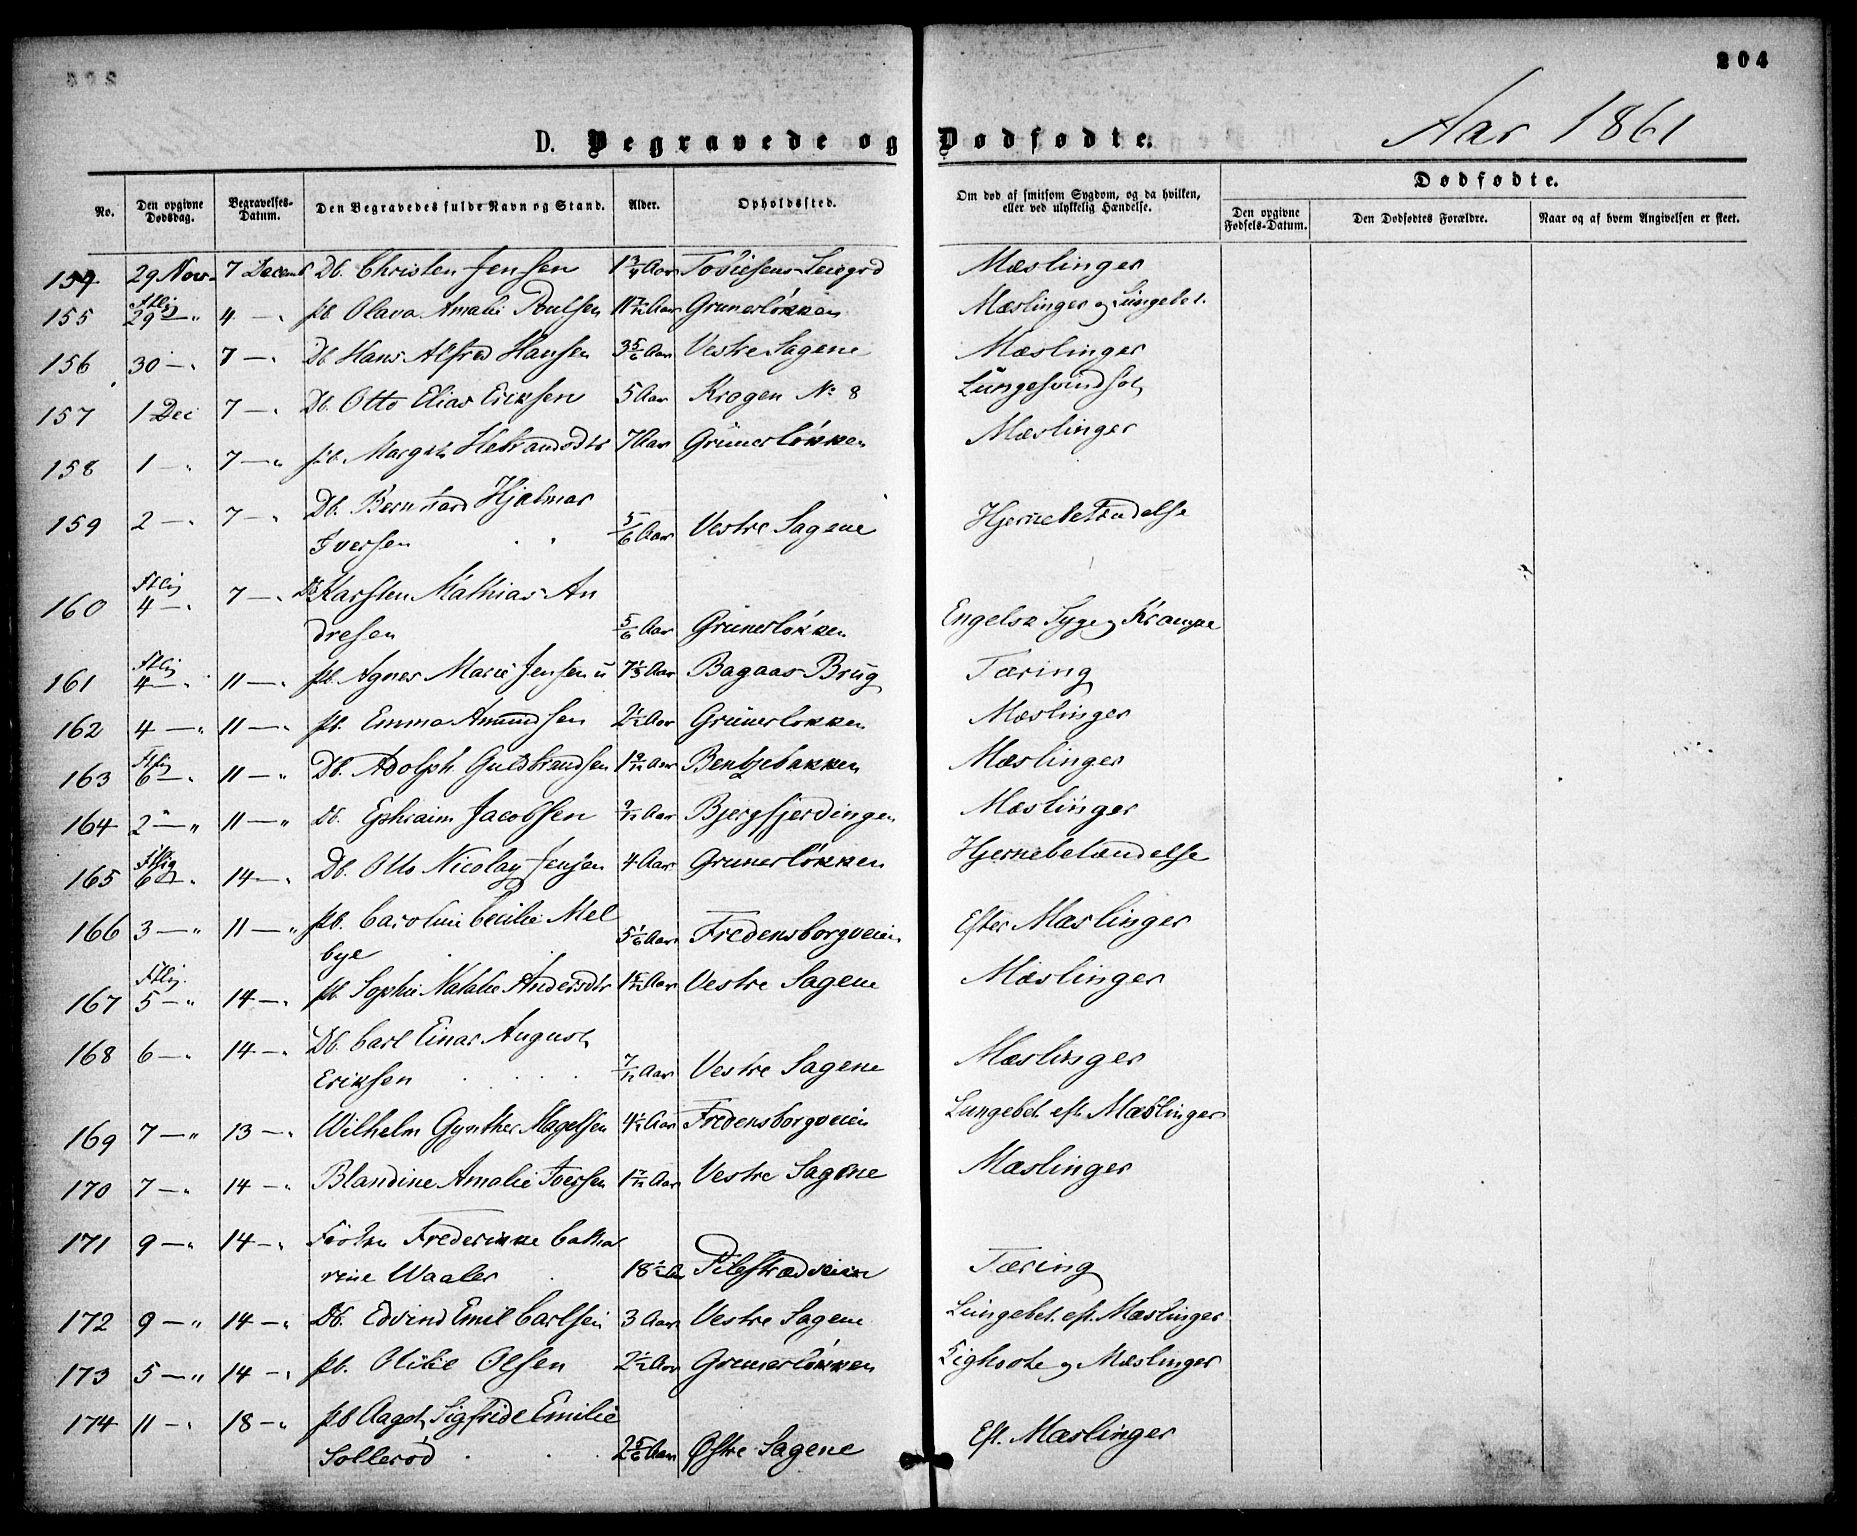 204
Aar 1861
D. Begravede og Dødfødte.
No. Den opgivne Dødsdag. Begravelses-Datum. Den Begravedes fulde Navn og Stand. Alder. Opholdssted. Om død af smitsom Sygdom, og da hvilken, eller ved ulykkelig Hændelse. Dødfødte.
Den opgivne Fødsels-Datum. Den Dødfødtes Forældre. Naar og af hvem Angivelsen er skeet.
154 29 Nov 7 Decemb Db. Christen Jensen 1 3/4 Aar Mæslinger
155 29 — " 4 — " pb. Olava Amalie Poulsen Aar Grunerløkken Mæslinger og Lungebet.
156 30 — " 7 — " Db Hans Alfred Hansen 3 5/6 Aar Vestre Sagene Mæslinger
157 1 Dec 7 — " Db. Otto Elias Eriksen 5 Aar Krogen No 8 Lungesvindsot
158 1 — " 7 — " pb. 7 Aar Grünerløkken Mæslinger
159 2 — " 7 — " Db. Bernhard Hjalmar
Iversen 5/6 Aar Vestre Sagene Hjernebetændelse
160 4 — " 7 — " Db Karsten Mathias An
dresen 5/6 Aar Grünerløkken Engelsk Syge og Krampe
161 4 — " 11 — " pb. Agnes Marie Jensen Aar Bagaas Brug Tæring
162 4 — " 11 — " pb. Emma Amundsen 2 1/2 Aar Grünerløkken Mæslinger
163 6 — " 11 — " Db. Adolph Guldbrandsen 1 9/12 Aar Bentsebakken Mæslinger
164 2 — " 11 — " Db. Ephraim Jacobsen 9/12 Aar Bjergfjerdingen Mæslinger
165 6 — " 14 — " Db. Otto Nicolay Jensen 4 Aar Grunerløkken Hjernebetændelse
166 3 — " 11 — " pb. Caroline Cecilie Mel
bye 5 1/6 Aar Fredensborgveien Efter Mæslinger
167 5 — " 14 — " pb. Sophie Natalie Andersdtr Aar Vestre Sagene Mæslinger
168 6 — " 14 — " Db. Carl Einar August
Eriksen 7/12 Aar Vestre Sagene Mæslinger
169 7 — " 13 — " Wilhelm Gynther Magelsen 4 1/2 Aar Fredensborgveien Lungebet. eft. Mæslinger
170 7 — " 14 — " Blandine Amalie Iversen 1 7/12 Aar Vestre Sagene Mæslinger
171 9 — " 14 — " Frøken Frederikke Catha
rine Waaler 18 1/2 A Pilestrædveien Tæring
172 9 — " 14 — " Db. Edvind Emil Carlsen 3 Aar Vestre Sagene Lungebet. eft. Mæslinger
173 5 — " 14 — " pb. Olise Olsen 2 1/2 Aar Grunerløkken Kighoste og Mæslinger
174 11 — " 18 — " pb Aagot Sigfride Emilie
Sollerød 2 5/6 Aar Østre Sagene Eft. Mæslinger